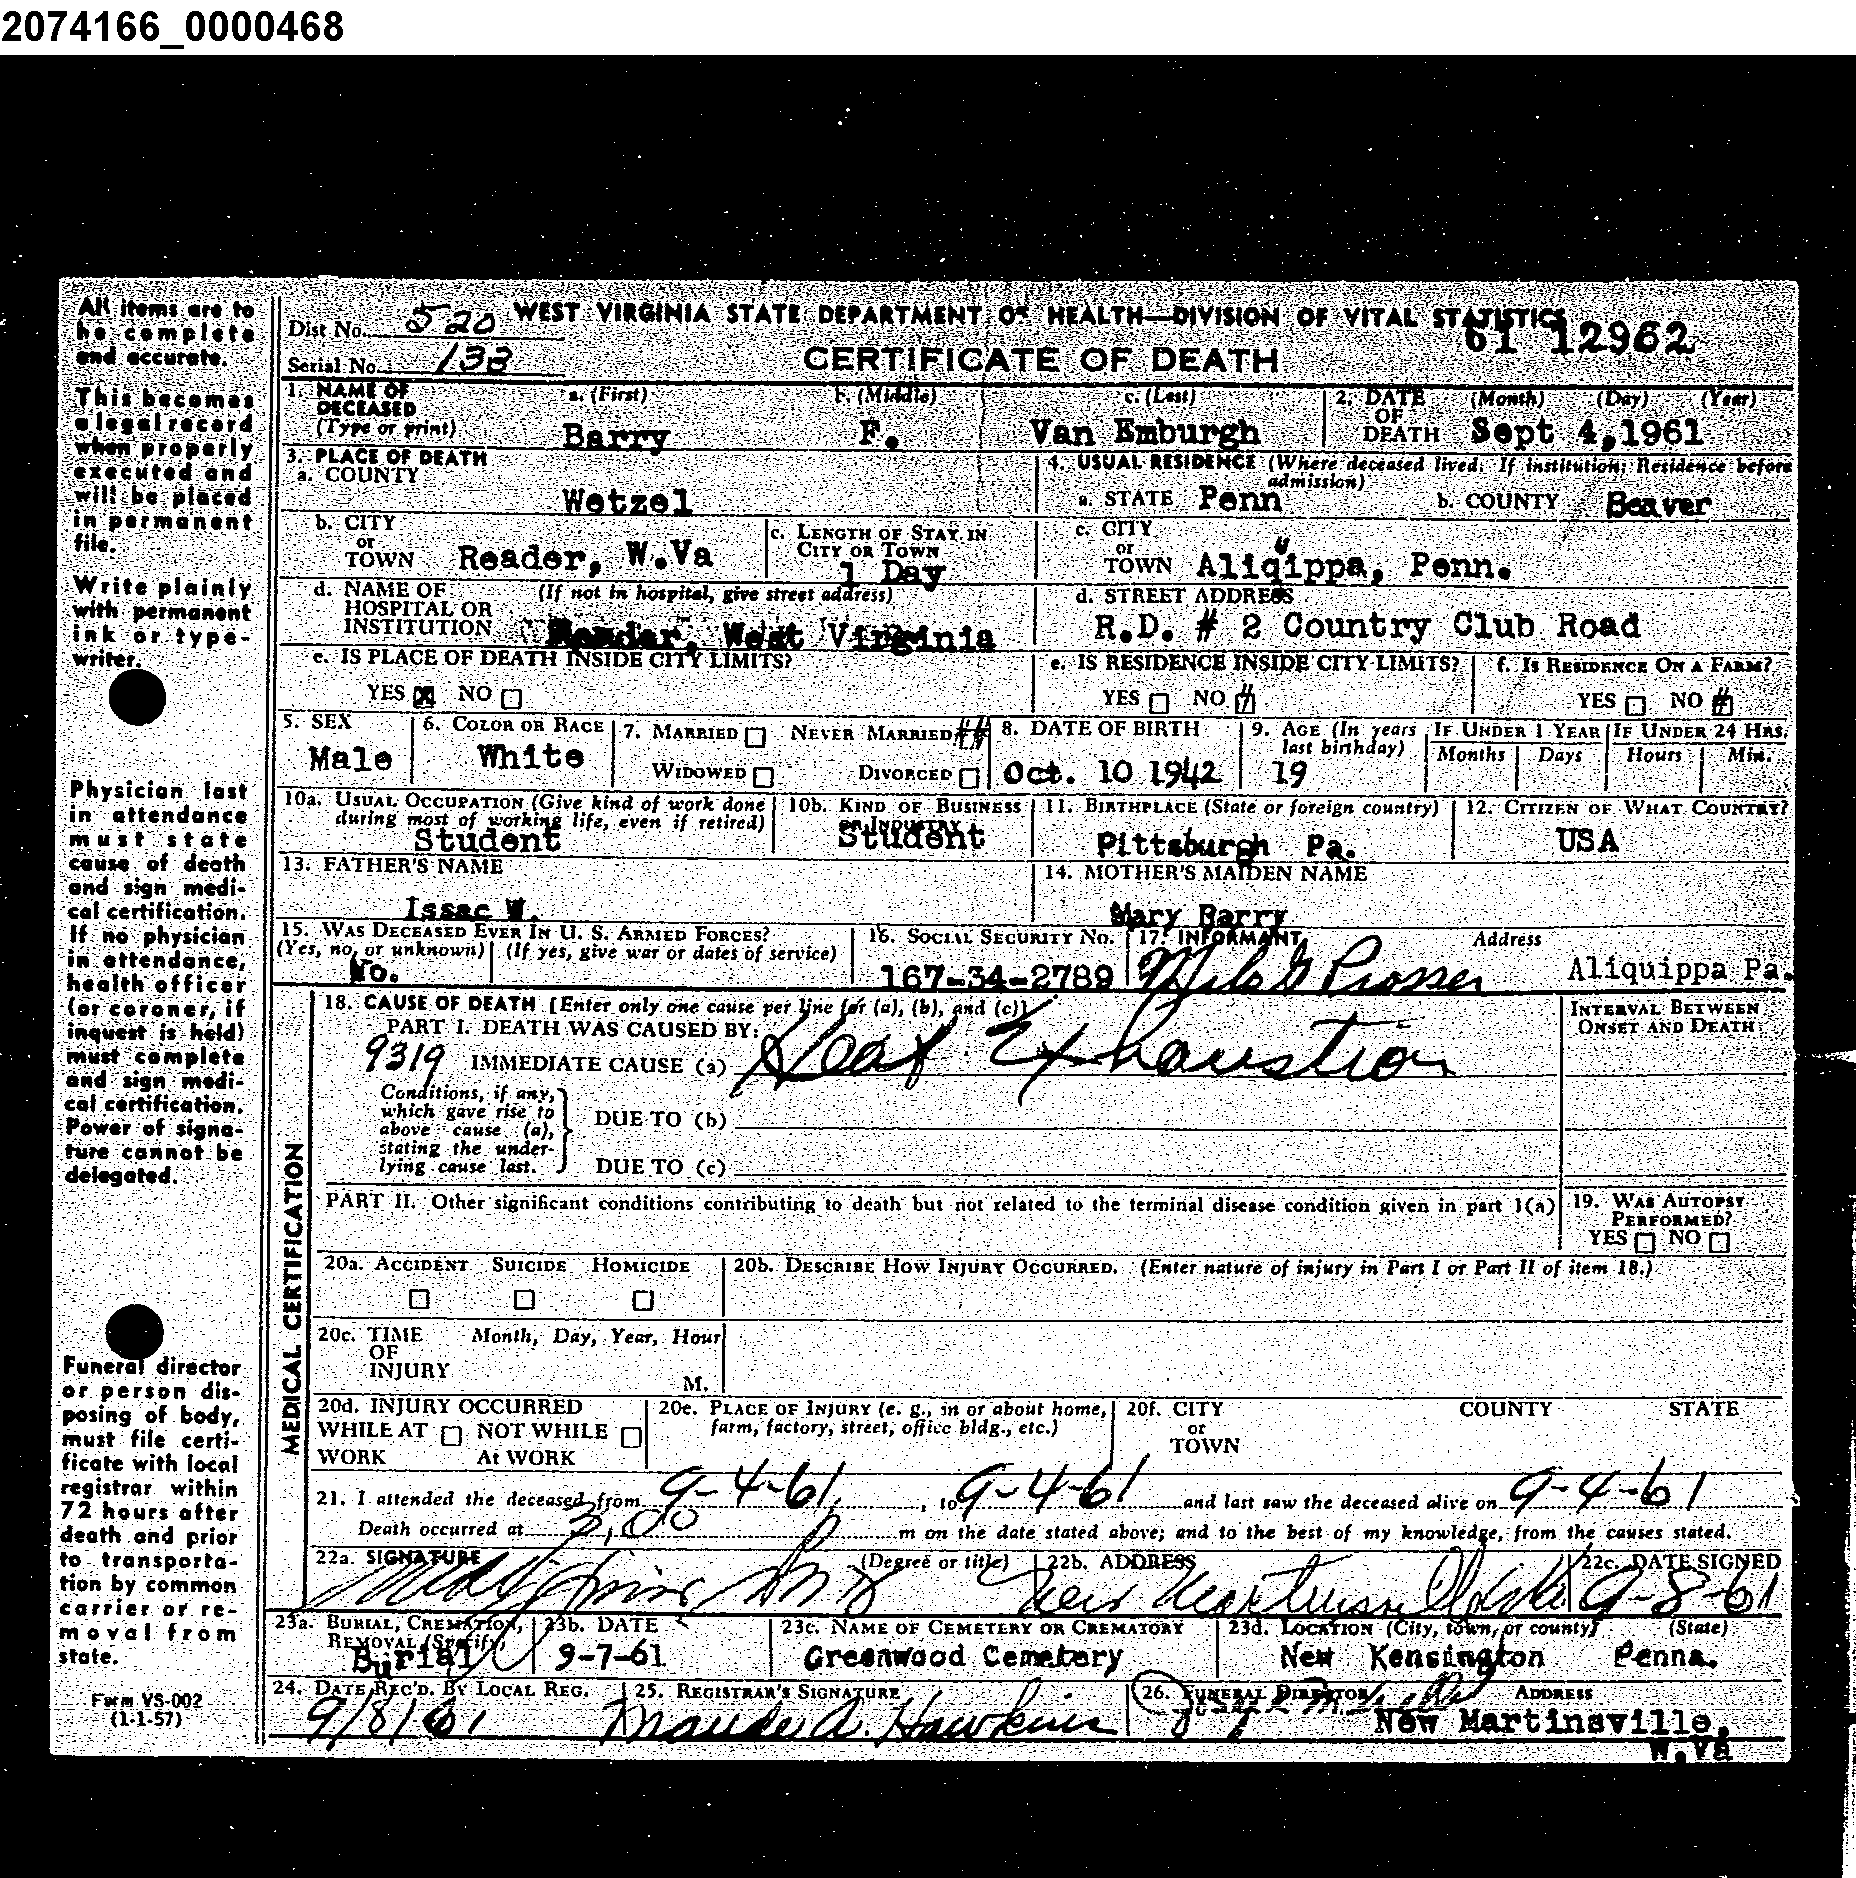 2074166_0000468
All items are to
be complete
and accurate.
This becomes
a legal record
when properly
executed and
will be placed
in permanent
file.
Write plainly
with permanent
ink or type-
writer.
Physician last
in attendance
must state
cause of death
and sign medi-
cal certification.
If no physician
in attendance,
health officer
(or coroner, if
inquest is held)
must complete
and sign medi-
cal certification.
Power of signa-
ture cannot be
delegated.
Funeral director
or person dis-
posing of body,
must file certi-
ficate with local
registrar within
72 hours after
death and prior
to transporta-
tion by common
carrier or re-
moval from
state.
Form VS-002
(1-1-57)
Dist No. 520 WEST VIRGINIA STATE DEPARTMENT OF HEALTH—DIVISION OF VITAL STATISTICS
Serial No. 138 CERTIFICATE OF DEATH 61 12962
1. NAME OF DECEASED (Type or print) a. (First) b. (Middle) c. (Last) 2. DATE OF DEATH (Month) (Day) (Year)
Barry F. Van Emburgh Sept 4,1961
3. PLACE OF DEATH 4. USUAL RESIDENCE (Where deceased lived. If institution: Residence before admission)
a. COUNTY Wetzel a. STATE Penn b. COUNTY Beaver
b. CITY or TOWN Reader, W.Va c. LENGTH OF STAY IN CITY OR TOWN 1 Day c. CITY or TOWN Aliqippa, Penn.
u
d. NAME OF HOSPITAL OR INSTITUTION (If not in hospital, give street address) Reader, West Virginia d. STREET ADDRESS R.D. # 2 Country Club Road
e. IS PLACE OF DEATH INSIDE CITY LIMITS? YES X NO e. IS RESIDENCE INSIDE CITY LIMITS? YES NO # f. IS RESIDENCE ON A FARM? YES NO #
5. SEX 6. COLOR OR RACE 7. MARRIED NEVER MARRIED ## 8. DATE OF BIRTH 9. AGE (In years last birthday) IF UNDER 1 YEAR IF UNDER 24 HRS.
Male White WIDOWED DIVORCED Oct. 10 1942 19 Months Days Hours Min.
10a. USUAL OCCUPATION (Give kind of work done during most of working life, even if retired) 10b. KIND OF BUSINESS OR INDUSTRY 11. BIRTHPLACE (State or foreign country) 12. CITIZEN OF WHAT COUNTRY?
Student Student Pittsburgh Pa. USA
13. FATHER'S NAME 14. MOTHER'S MAIDEN NAME
Issac W. Mary Barry
15. WAS DECEASED EVER IN U. S. ARMED FORCES? 16. SOCIAL SECURITY NO. 17. INFORMANT Address
(Yes, no, or unknown) (If yes, give war or dates of service)
No. 167-34-2789 Prosser Aliquippa Pa.
18. CAUSE OF DEATH [Enter only one cause per line for (a), (b), and (c)] INTERVAL BETWEEN ONSET AND DEATH
PART I. DEATH WAS CAUSED BY:
9319 IMMEDIATE CAUSE (a) Heat Exhaustion
Conditions, if any, which gave rise to above cause (a), stating the under-lying cause last.
DUE TO (b)
DUE TO (c)
PART II. Other significant conditions contributing to death but not related to the terminal disease condition given in part I(a) 19. WAS AUTOPSY PERFORMED? YES NO
20a. ACCIDENT SUICIDE HOMICIDE 20b. DESCRIBE HOW INJURY OCCURRED. (Enter nature of injury in Part I or Part II of item 18.)
20c. TIME OF INJURY Month, Day, Year, Hour M.
20d. INJURY OCCURRED WHILE AT WORK NOT WHILE At WORK 20e. PLACE OF INJURY (e. g., in or about home, farm, factory, street, office bldg., etc.) 20f. CITY or TOWN COUNTY STATE
MEDICAL CERTIFICATION
21. I attended the deceased from 9-4-61, to 9-4-61 and last saw the deceased alive on 9-4-61
Death occurred at 3,00 P m on the date stated above; and to the best of my knowledge, from the causes stated.
22a. SIGNATURE (Degree or title) 22b. ADDRESS 22c. DATE SIGNED
New Martinsville 9-8-61
23a. BURIAL, CREMATION, REMOVAL (Specify) 23b. DATE 23c. NAME OF CEMETERY OR CREMATORY 23d. LOCATION (City, town, or county) (State)
Burial 9-7-61 Greenwood Cemetery New Kensington Penna.
24. DATE REC'D. BY LOCAL REG. 25. REGISTRAR'S SIGNATURE 26. FUNERAL DIRECTOR ADDRESS
9/8/61 Maude A. Hawkins New Martinsville,
W.Va